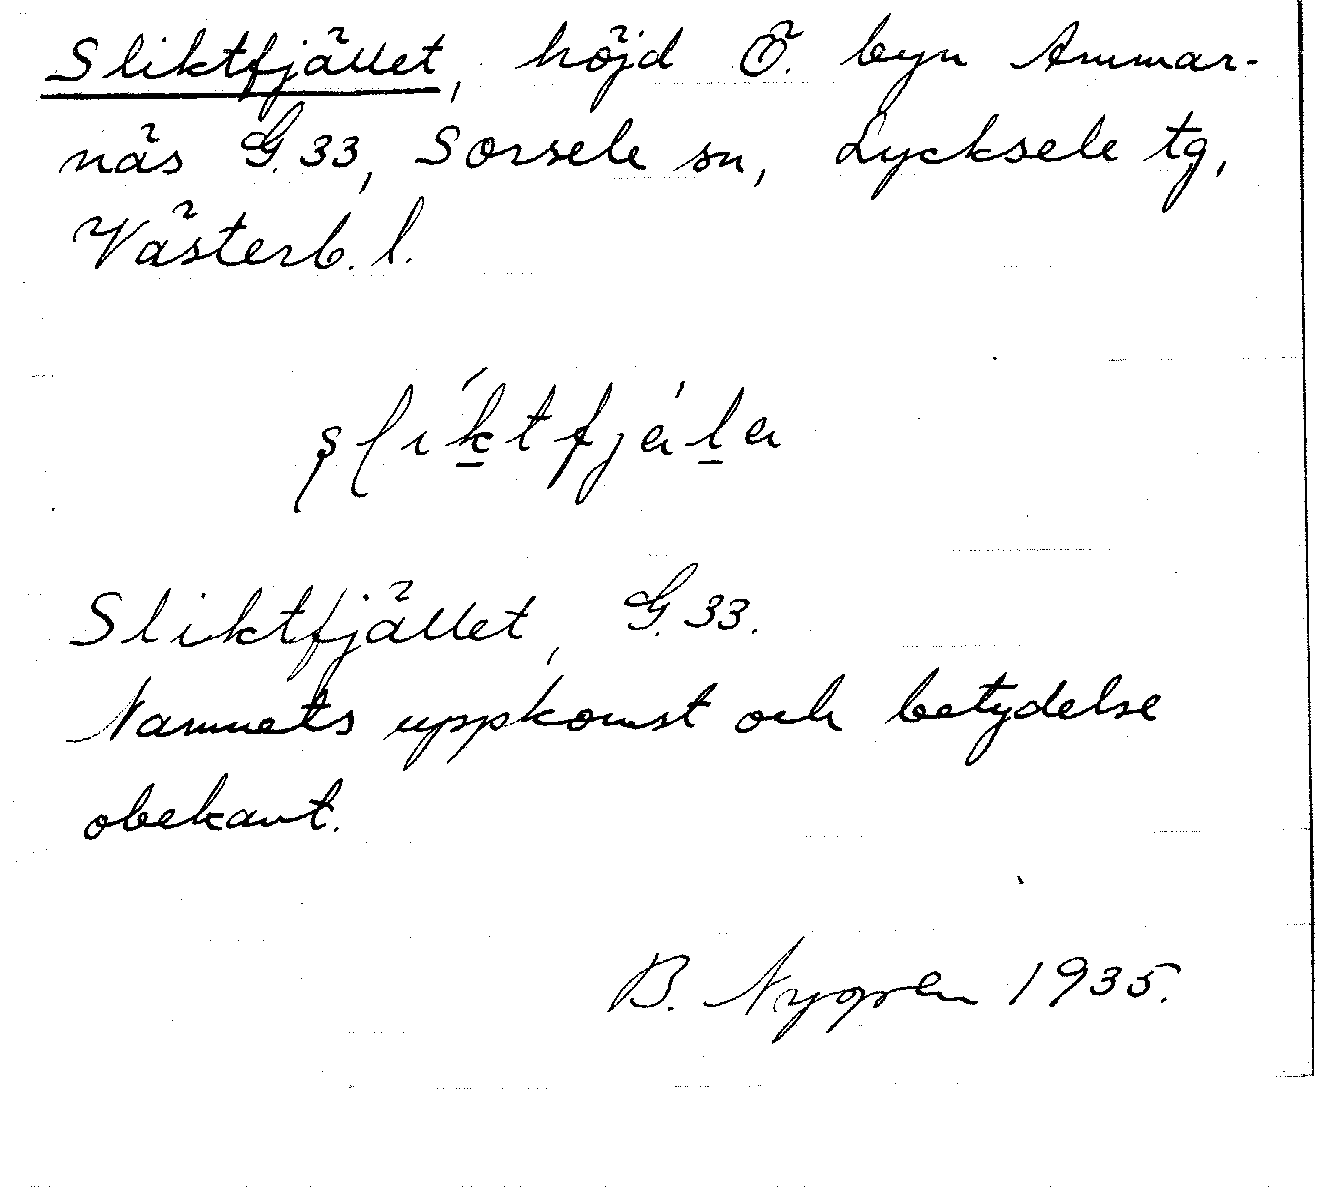 Sliktfjället, höjd Ö. byn Ammar-
näs G.33, Sorsele sn, Lycksele tg,
Västerb. l.
Sliktfjället, G.33.
Namnets uppkomst och betydelse
obekant.
B. Nygren 1935.